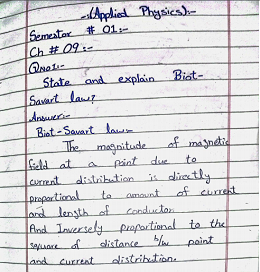 -:(Applied Physics):-
Semester # 01:-
Ch # 09:-
QNo1:-
State and explain Biot-
Savart law?
Answer:-
Biot-Savart law:-
The magnitude of magnetic
field at a point due to
current distribution is directly
proportional to amount of current
and length of conductor.
And Inversely proportional to the
square of distance b/w point
and current distribution.